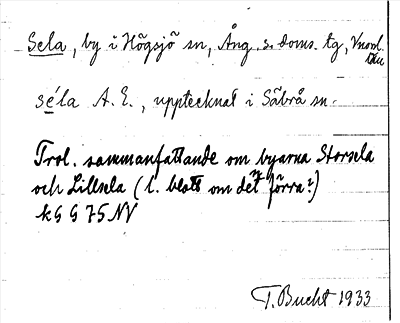 Sela, by i Högsjö sn, Ång. s. doms. tg, Vnorrl.
län
séla A. E., upptecknat i Säbrå sn.
Trol. sammanfattande om byarna Storsela
och Lillsela (l. blott om det förra?)
kG G 75 NV
T. Bucht 1933